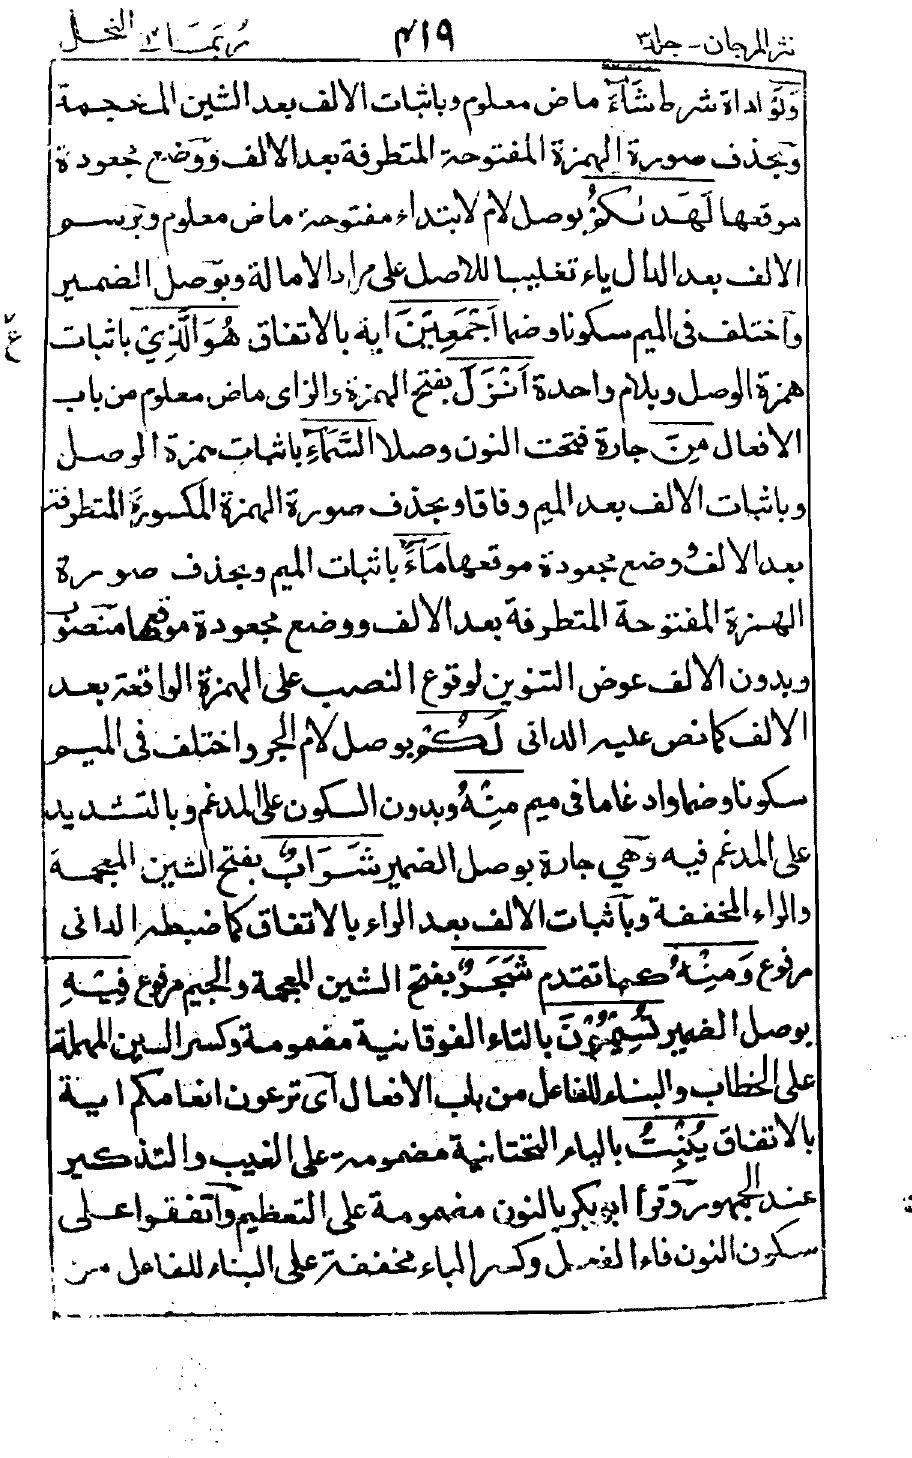 نثر المرجان - جلد ٣ ٤١٩ ربما ١٤ النحل
وَلَوْ اداة شرط شَآءَ ماض معلوم وباثبات الالف بعد الشين المعجمة
وبحذف صورة الهمزة المفتوحة المتطرفة بعد الالف ووضع مجعودة
موقعها لَهَدٰىكُمْ بوصل لام لابتداء مفتوحة ماض معلوم وبرسم
الالف بعد الدال ياء تغليبا للاصل على مراد الامالة وبوصل الضمير
واختلف فى الميم سكونا وضما اَجْمَعِيْنَ اية بالاتفاق هُوَ الَّذِيْ باثبات
همزة الوصل وبلام واحدة اَنْزَلَ بفتح الهمزة والزاى ماض معلوم من باب
الافعال مِنَ جارة فتحت النون وصلا السَّمَآءِ باثبات همزة الوصل
وباثبات الالف بعد الميم وفاقا وبحذف صورة الهمزة المكسورة المتطرفة
بعد الالف ووضع مجعودة موقعها مَآءً باثبات الميم وبحذف صورة
الهمزة المفتوحة المتطرفة بعد الالف ووضع مجعودة موقعها منصوب
وبدون الالف عوض التنوين لوقوع النصب على الهمزة الواقعة بعد
الالف كما نص عليه الدانى لَكُمْ بوصل لام الجر واختلف فى الميم
سكونا وضما وادغاما فى ميم مِنْهُ وبدون السكون على المدغم وبالتشديد
على المدغم فيه وهي جارة بوصل الضمير شَرَابٌ بفتح الشين المعجمة
والراء المخففة وباثبات الالف بعد الراء بالاتفاق كما ضبطه الدانى
مرفوع وَمِنْهُ كما تقدم شَجَرٌ بفتح الشين المعجمة والجيم مرفوع فِيْهِ
بوصل الضمير تُسِيْمُوْنَ بالتاء الفوقانية مضمومة وكسر السين المهملة
على الخطاب والبناء للفاعل من باب الافعال اى ترعون انعامكم اية
بالاتفاق يُنْبِتُ بالياء التحتانية مضمومة على الغيب والتذكير
عند الجمهور وقرأ ابوبكر بالنون مضمومة على التعظيم واتفقوا على
سكون النون فاء الفعل وكسر الباء مخففة على البناء للفاعل من